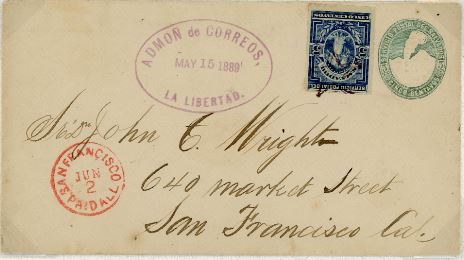 ADMON de CORREOS,
MAY 15 1889
LA LIBERTAD.
SERVICIO POSTAL DEL
Sr. Dn John C. Wright
640 market Street
San Francisco Cal.
SAN FRANCISCO
JUN
2
PAID ALL